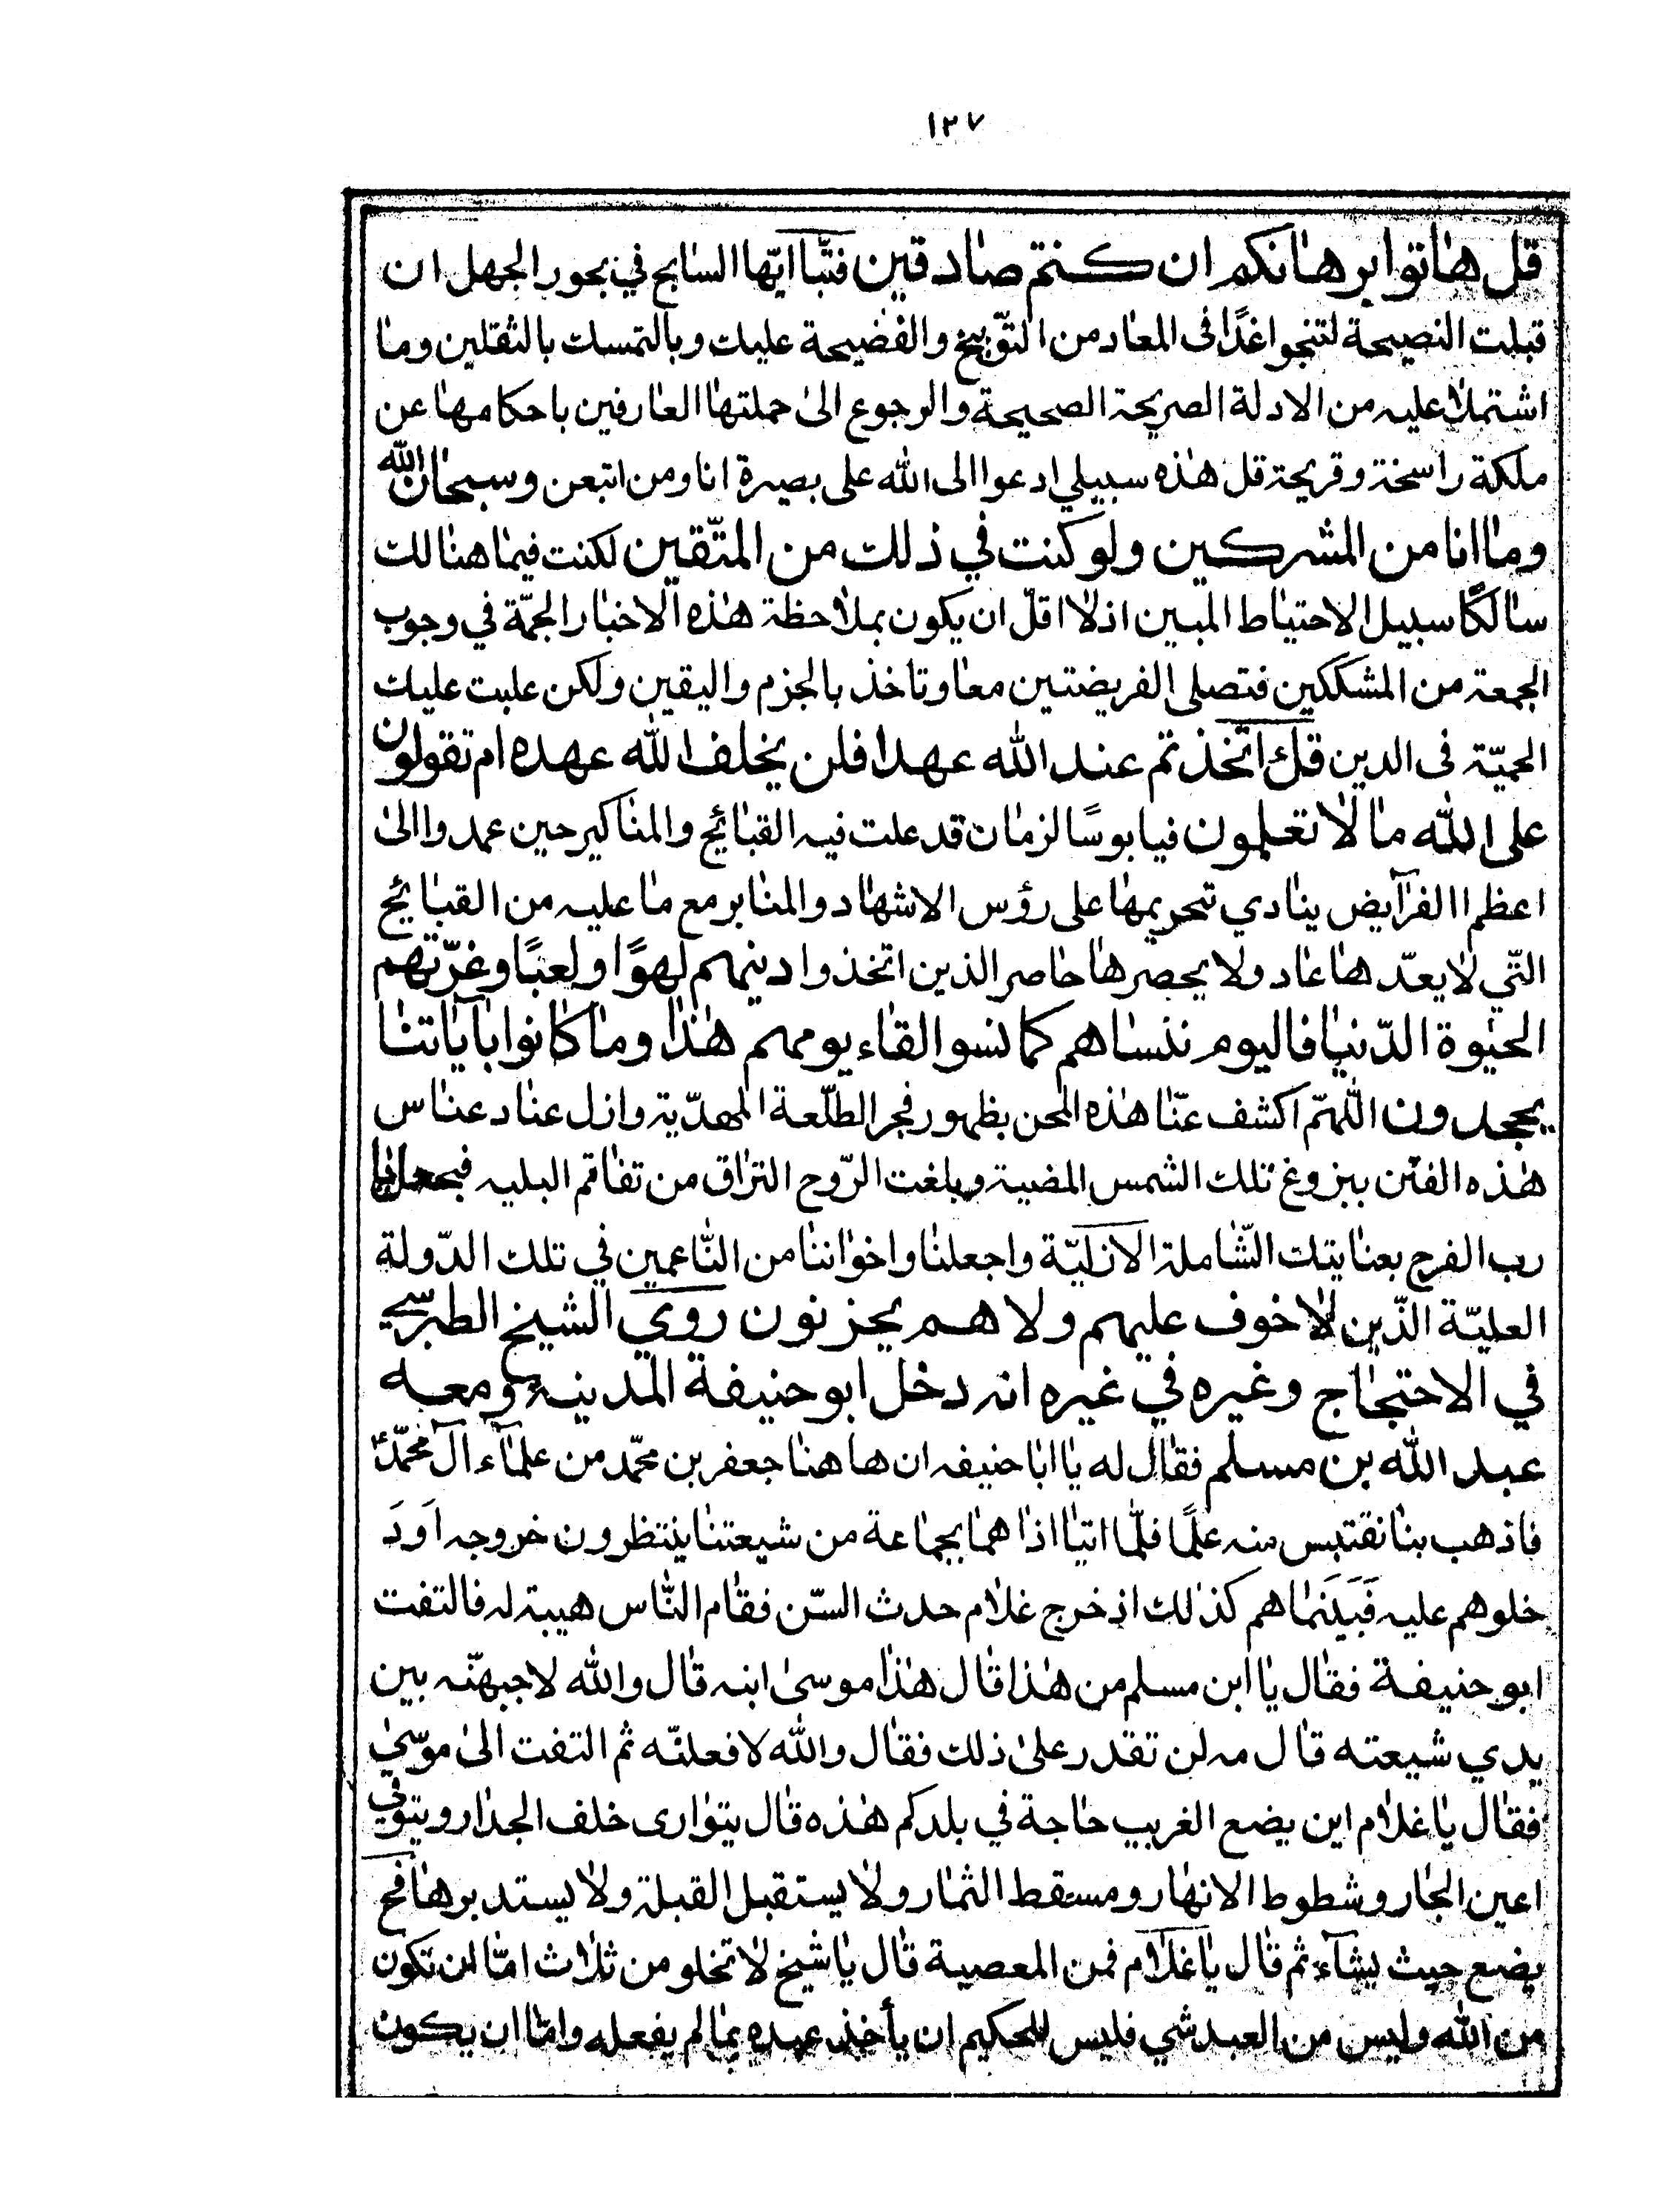 ١٢٧
قل هاتوا برهانكم ان كنتم صادقين فتبّا ايّها السابح في بحور الجهل ان
قبلت النصيحة لتنجوا غدًا فى المعاد من التوّبيخ والفضيحة عليك وبالتمسك بالثقلين وما
اشتملا عليه من الادلة الصريحة الصحيحة والرجوع الى حملتها العارفين باحكامها عن
ملكة راسخة وقريحة قل هذه سبيلي ادعوا الى الله على بصيرة انا ومن اتبعن وسبحان الله
وما انا من المشركين ولو كنت في ذلك من المتّقين لكنت فيما هنالك
سالكًا سبيل الاحتياط المبين اذ لا اقلّ ان يكون بملاحظة هذه الاخبار الجمّة في وجوب
الجمعة من المشككين فتصلى الفريضتين معا وتاخذ بالجزم واليقين ولكن علبت عليك
الحميّة فى الدين قل اتّخذتم عند الله عهدا فلن يخلف الله عهده ام تقولون
على الله ما لا تعلمون فيا بوسًا لزمان قد علت فيه القبائح والمناكير حين عمدوا الى
اعظم الفرآيض ينادي تحريمها على رؤس الاشهاد والمنابر مع ما عليه من القبائح
التّي لا يعدّها عاد ولا يحصرها حاصر الذين اتخذوا دينهم لهوًا ولعبًا وغرّتهم
الحيوة الدّنيا فاليوم ننساهم كما نسوا لقاء يومهم هذا وما كانوا بآياتنا
يجحدون اللّهمّ اكشف عنّا هذه المحن بظهور فجر الطلّعة المهدّية وازل عناد عناس
هذه الفتن ببزوغ تلك الشمس المضية وبلغت الرّوح التراق من تفاقم البليه
رب الفرج بعنايتك الشّاملة الازليّة واجعلنا واخواننا من النّاعمين في تلك الدّولة
العليّة الذّين لا خوف عليهم ولا هم يحزنون روي الشيخ الطبرسي
في الاحتجاج وغيره في غيره انه دخل ابو حنيفة المدينة ومعه
عبد الله بن مسلم فقال له يا ابا حنيفه ان هاهنا جعفر بن محمّد من علمآء آل محمّد
فاذهب بنا نقتبس منه علمًا فلّما اتيا اذا هما بجماعة من شيعتنا ينتظرون خروجه اَو دَ
خلوهم عليه فَبَيَنَما هم كذلك اذ خرج غلام حدث السّن فقام النّاس هيبة له فالتفت
ابو حنيفة فقال يا ابن مسلم من هذا قال هذا موسى ابنه قال والله لاجبهنّه بين
يدي شيعته قال مه لن تقدر على ذلك فقال والله لافعلنّه ثم التفت الى موسى
فقال يا غلام اين يضع الغريب حاجة في بلدكم هذه قال يتوارى خلف الجدار ويتوقى
اعين الجار وشطوط الانهار ومسقط الثمار ولا يستقبل القبلة ولا يستدبرها فح
يضع حيث يشآء ثم قال يا غلام فمن المعصية قال يا شيخ لا تخلو من ثلاث امّا ان تكون
من الله وليس من العبد شي فليس للحكيم ان يأخذ عبده بما لم يفعله وامّا ان يكون